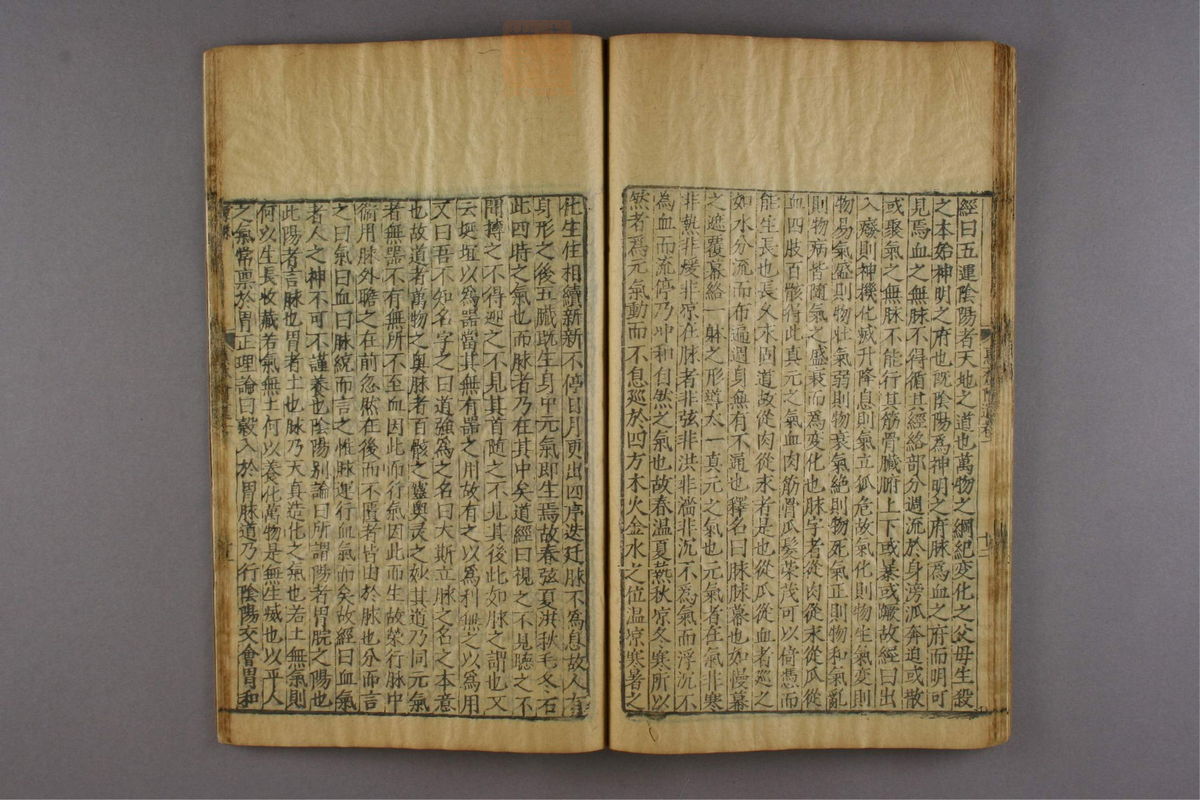 經曰五運陰陽者天地之道也萬物之綱紀變化之父母生殺
之本始神明之府也既陰陽為神明之府脉為血之府而明可
見焉血之無脉不得循其經絡部分週流於身滂瓜奔迫或散
或聚氣之無脉不能行其筋骨臟腑上下或暴或蹶故經曰出
入癈則神機化滅升降息則氣立孤危故氣化則物生氣變則
物易氣盛則物壯氣弱則物衰氣絕則物死氣正則物和氣亂
則物病皆隨氣之盛衰而為變化也脉字者從肉從永從瓜從
血四肢百骸得此真元之氣血肉筋骨瓜髮榮茂可以倚憑而
能生長也長久永固道故從肉從永者是也從瓜從血者巡之
如水分流而布遍週身無有不通也釋名曰脉脉幕也如幔幕
之遮覆幕絡一躰之形導太一真元之氣也元氣者在氣非寒
非熱非煖非凉在脉者非弦非洪非濇非沉不為氣而浮沉不
為血而流停乃冲和自然之氣也故春温夏𤍠秋凉冬寒所以
然者為元氣動而不息巡於四方木火金水之位温凉寒暑之
化生生相續新新不停日月更出四序迭迁脉不為息故人有
身形之後五臟既生身中元氣即生焉故春弦夏洪秋毛冬石
此四時之氣也而脉者乃在其中矣道經曰視之不見聽之不
聞摶之不得迎之不見其首随之不見其後此如脉之謂也又
云埏埴以為器當其無有器之用故有之以為利無之以為用
又曰吾不知名字之曰道強為之名曰大斯立脉之名之本意
也故道者萬物之奥脉者百骸之靈奥灵之妙其道乃同元氣
者無器不有無所不至血因此而行氣因此而生故榮行脉中
衛用脉外瞻之在前忽然在後而不匱者皆由於脉也分而言
之曰氣曰血曰脉緫而言之惟脉運行血氣而矣故經曰血氣
者人之神不可不謹養也陰陽别論曰所謂陽者胃脘之陽也
此陽者言脉也胃者土也脉乃天真造化之氣也若土無氣則
何以生長收藏若氣無土何以养化萬物是無生威也以平人
之氣常禀於胃正理論曰穀入於胃脉道乃行陰陽交會胃和